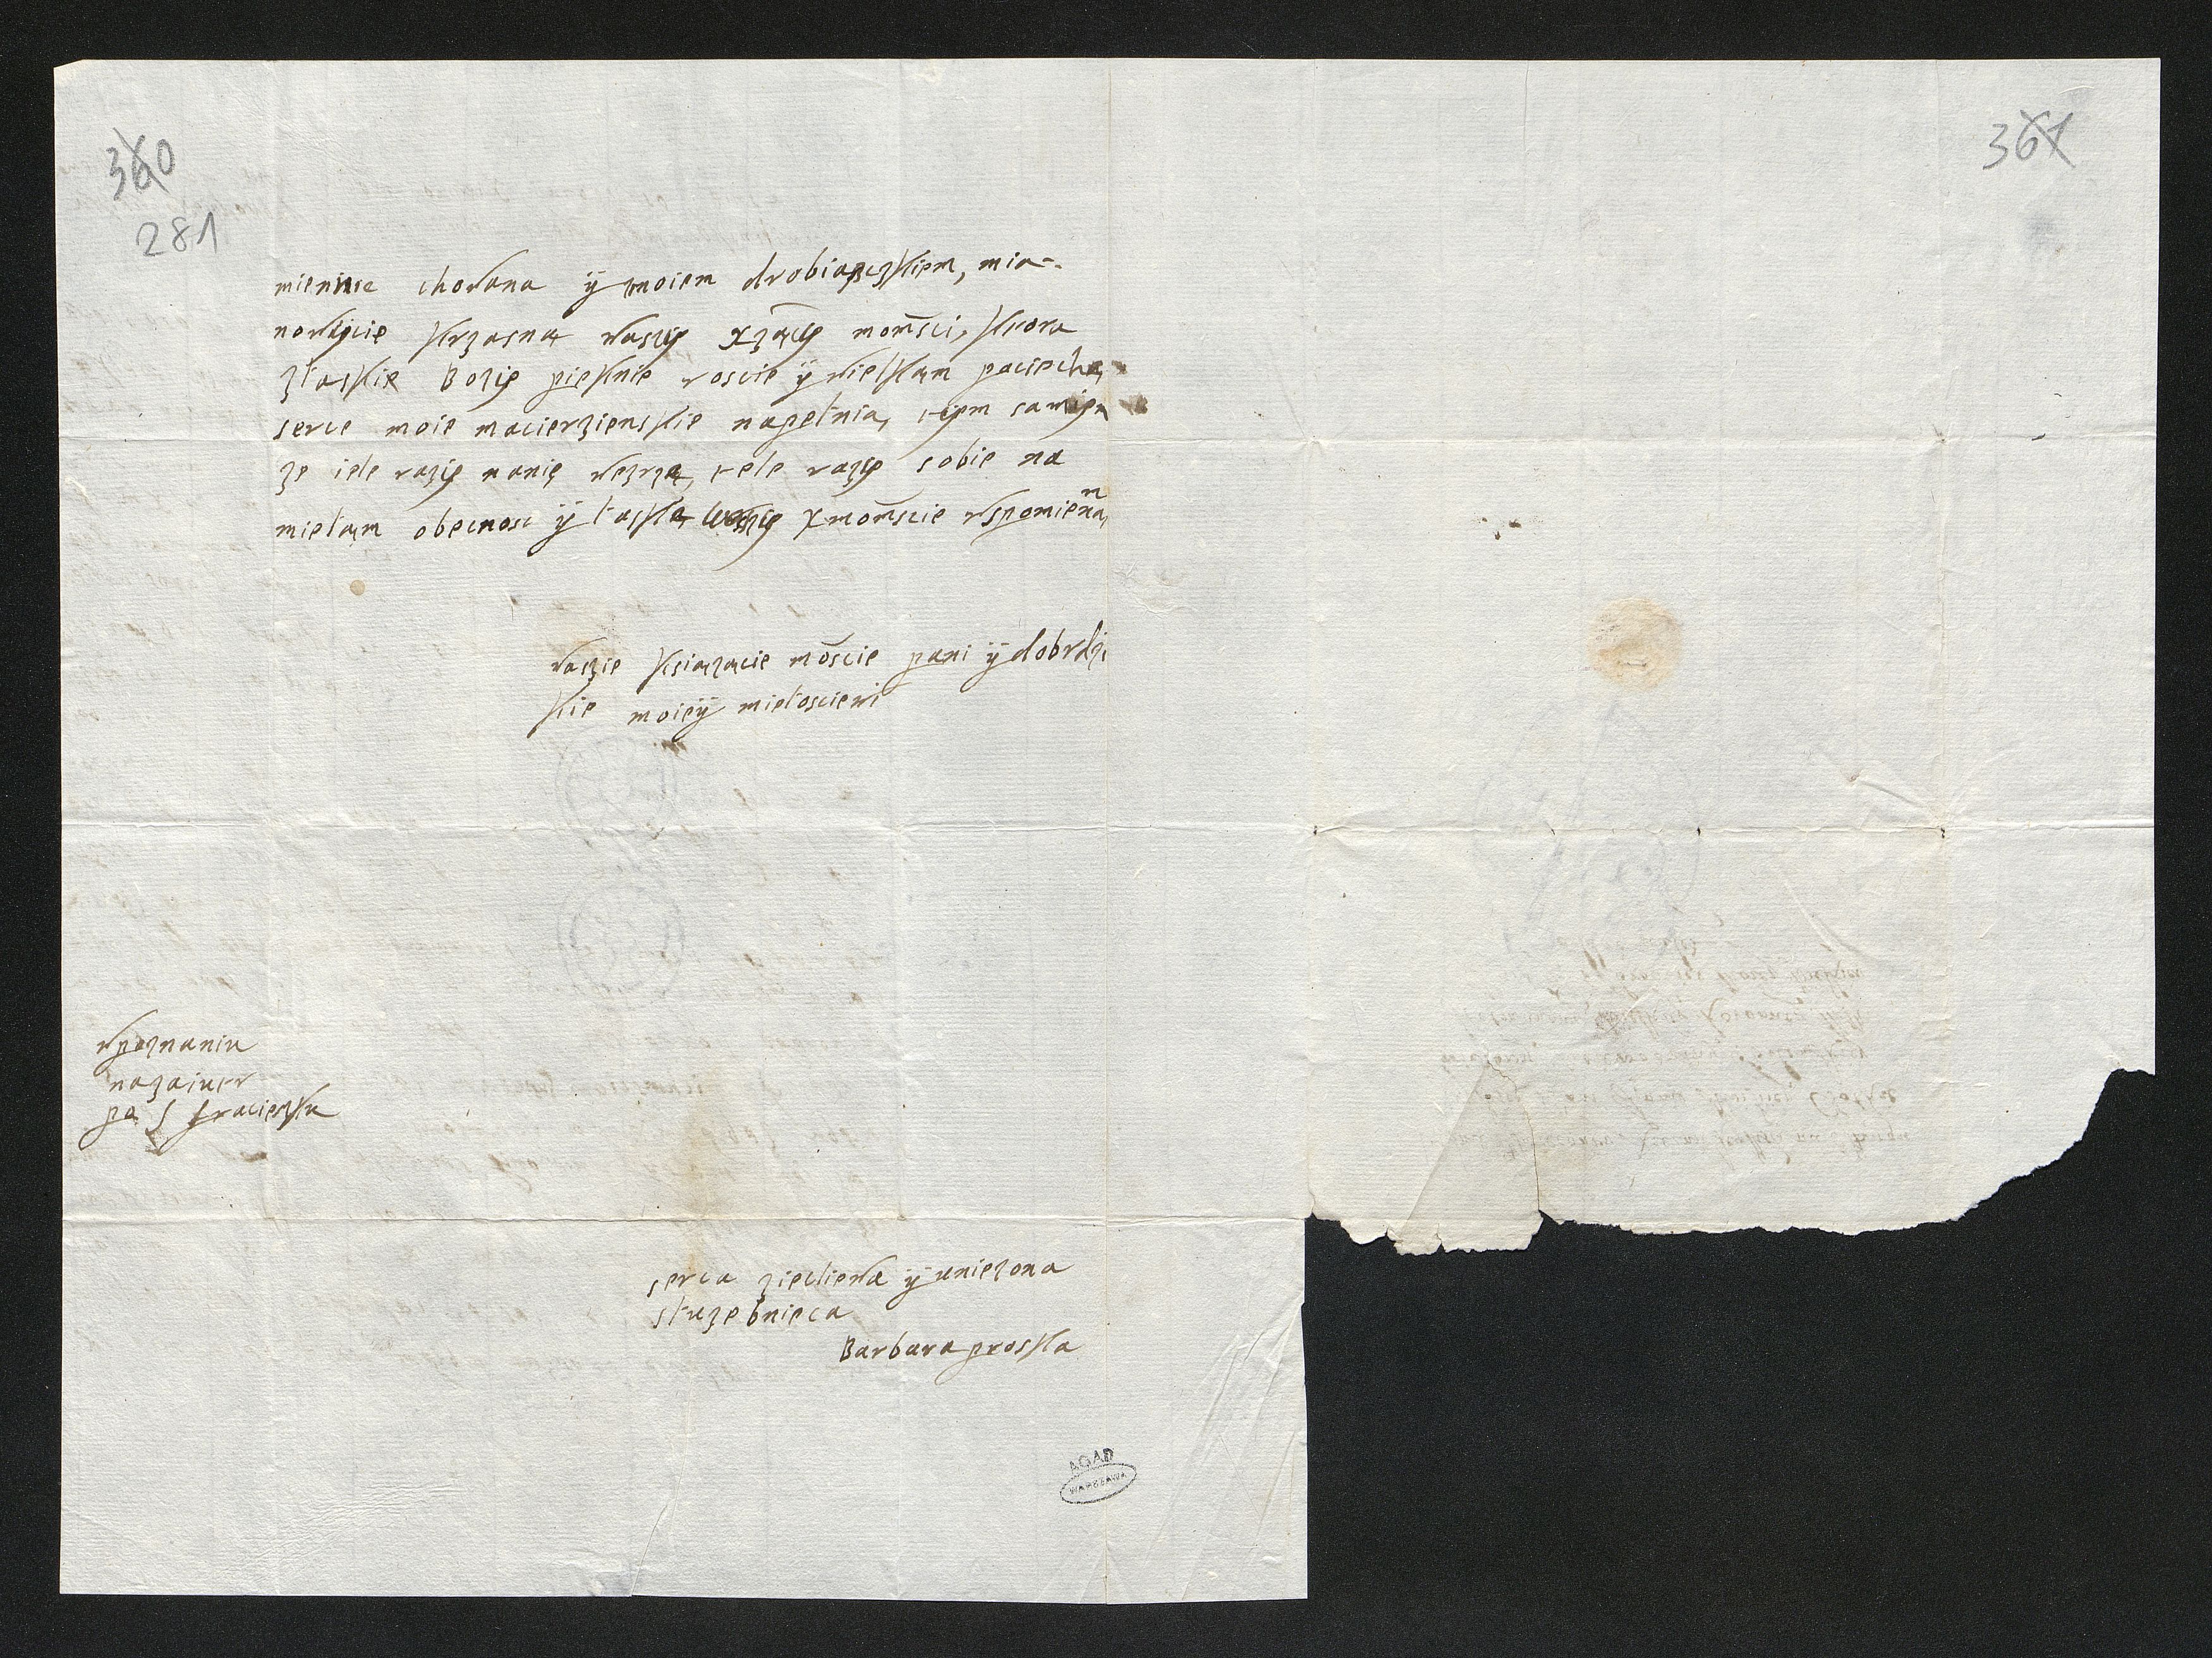 360
281
361
mieniue chowana ÿ zmoiem drobiazczkiem, mia-
nowÿcie krzasna waszÿ xzącÿ momsci, ktora
złaskie Bozÿe pieknie roscie ÿ wielkąm pociechą
serce moie macierzienskie napełnia, tÿem samÿem
ze iele razÿ nanię wezrzą, tele razÿ sobie na
miełąm obecnosc ÿ łaską waszÿ xmomscie wspomienną
waszie ksiązącie moscie pani ÿ dobrdzi
kie moieÿ miełosciewi
wpoznaniu
nazaiutr
po S fracieszku
serca ziecliewa ÿ uniezona
słuzebnieca
Barbara proska
AGAD
WARSZAWA